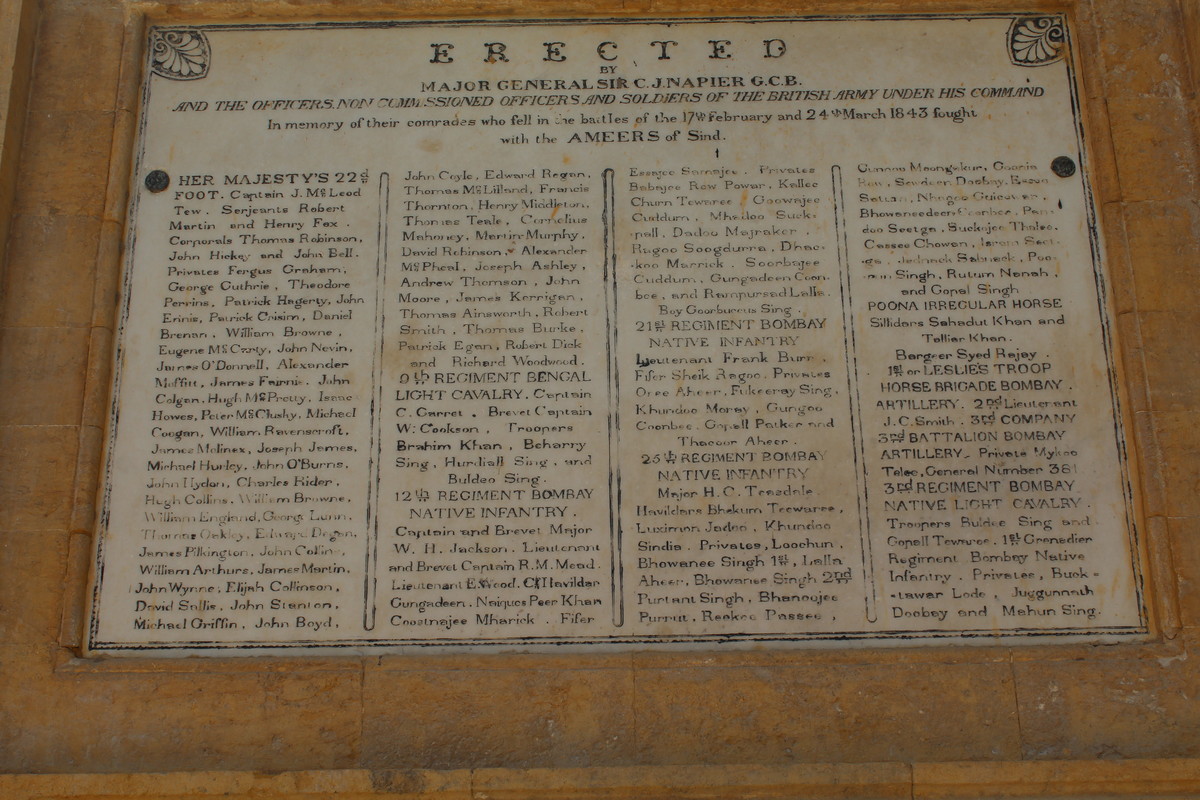 ERECTED
BY
MAJOR GENERAL SIR C. J. NAPIER G.C.B.
AND THE OFFICERS, NON COMMISSIONED OFFICERS AND SOLDIERS OF THE BRITISH ARMY UNDER HIS COMMAND
In memory of their comrades who fell in the battles of the 17th February and 24th March 1843 fought
with the AMEERS of Sind.
HER MAJESTY'S 22d
FOOT. Captain J. Mc Leod
Tew. Serjeants Robert
Martin and Henry Fox.
Corporals Thomas Robinson,
John Hickey and John Bell.
Privates Fergus Graham,
George Guthrie, Theodore
Perrins, Patrick Hagerty, John
Erinis, Patrick Crisim, Daniel
Brenan, William Browne,
Eugene Mc Carty, John Nevin,
James O'Donnell, Alexander
Moffitt, James Fannie, John
Colgan, Hugh Mc Pretty, Isaac
Howes, Peter Mc Clusky, Michael
Coogan, William Ravenscroft,
James Molinex, Joseph James,
Michael Hurley, John O'Burns,
John Hydon, Charles Rider,
Hugh Collins, William Browne,
William England, George Lunn,
Thomas Oakley, Edward Dogan,
James Pilkington, John Collins,
William Arthurs, James Martin,
John Wynne, Elijah Collinson,
David Sallis, John Stanton,
Michael Griffin, John Boyd,
John Coyle, Edward Regan,
Thomas Mc Lilland, Francis
Thornton, Henry Middleton,
Thomas Teale, Cornelius
Mahoney, Martin Murphy,
David Robinson, Alexander
Mc Pheal, Joseph Ashley,
Andrew Thomson, John
Moore, James Kerrigan,
Thomas Ainsworth, Robert
Smith, Thomas Burke,
Patrick Egan, Robert Dick
and Richard Woodwood.
9th REGIMENT BENGAL
LIGHT CAVALRY. Captain
C. Garret. Brevet Captain
W. Cookson, Troopers
Brahim Khan, Beharry
Sing, Hurdiall Sing, and
Buldeo Sing.
12th REGIMENT BOMBAY
NATIVE INFANTRY.
Captain and Brevet Major
W. H. Jackson. Lieutenant
and Brevet Captain R. M. Mead.
Lieutenant E. Wood. Cr Havildar
Gungadeen. Naiques Peer Khan
Cooatnajee Mharick. Fifer
Essajee Samajee. Privates
Babajee Row Powar, Kallee
Churn Tewaree, Goowajee
Cuddum, Mhadoo Suck-
-pall, Dadoo Majraker,
Ragoo Soogdurra, Dhac-
-koo Marrick, Soorbajee
Cuddum, Gungadeen Coon-
bee, and Rampursad Lalla.
Boy Goorbuccus Sing.
21st REGIMENT BOMBAY
NATIVE INFANTRY
Lieutenant Frank Burr.
Fifer Sheik Ragoo. Privates
Oree Aheer, Fukeeray Sing,
Khundoo Moray, Gungoo
Coonbee, Gopall Patker and
Thacoor Aheer.
25th REGIMENT BOMBAY
NATIVE INFANTRY
Major H. C. Teasdale.
Havildars Bhekum Teewaree,
Luximon Jadoo, Khundoo
Sindia. Privates, Loochun,
Bhowanee Singh 1st, Lalla
Aheer, Bhowanee Singh 2nd
Purtant Singh, Bhanoojee
Purrut, Reekee Passee,
Gunnoo
Row, Sewdeen Doobay,
Bhowaneedeen
doo Seetga, Suckojee
Cassee Chowan,
Sabnack, Poo-
Singh, Ruttum Nanah,
and Gopal Singh
POONA IRREGULAR HORSE
Sillidars Sahadut Khan and
Tallier Khan.
Bargeer Syed Rajay.
1st or LESLIE'S TROOP
HORSE BRIGADE BOMBAY.
ARTILLERY. 2nd Lieutenant
J. C. Smith. 3rd COMPANY
3rd BATTALION BOMBAY
ARTILLERY. Private Mykoo
Talec, General Number 381
3rd REGIMENT BOMBAY.
NATIVE LIGHT CAVALRY.
Troopers Buldee Sing and
Gopall Tewaree. 1st Grenadier
Regiment Bombay Native
Infantry. Privates, Buck-
-tawar Lode, Juggunnath
Doobay and Mahun Sing.